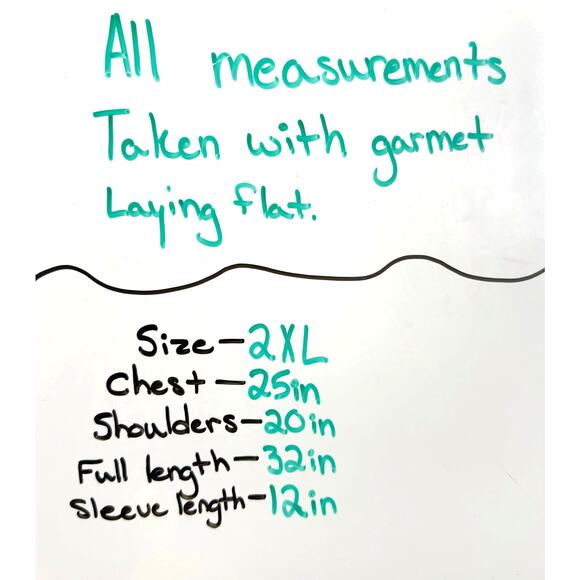 All measurements
Taken with garmet
Laying flat.
Size-2XL
Chest-25in
Shoulders-20in
Full length-32in
Sleeve length-12in